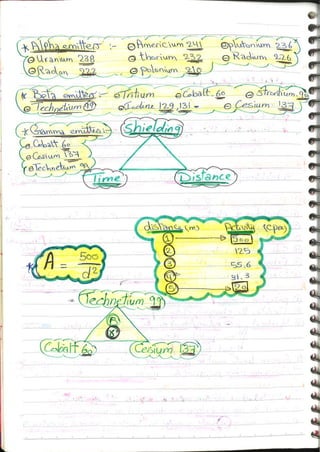 * Alpha emitters :- ⊙ Americium 241 ⊙ plutonium 236
⊙ Uranium 238 ⊙ thorium 232 ⊙ Radium 226
⊙ Radon 222 ⊙ polonium 210
* Beta emitters :- ⊙ Tritium ⊙ Cobalt 60 ⊙ Strontium 90
⊙ Technetium 99 ⊙ Iodine 129, 131 - ⊙ Cesium 137
* Gamma emitters :-
⊙ Cobalt 60
⊙ Cesium 137
⊙ Technetium 99
Shielding
Time Distance
distance (m) Activity (cps)
1 500
2 125
3 55.6
4 31.3
5 20
* A = 500 / d²
Technetium 99
B
Cobalt 60 Cesium 137